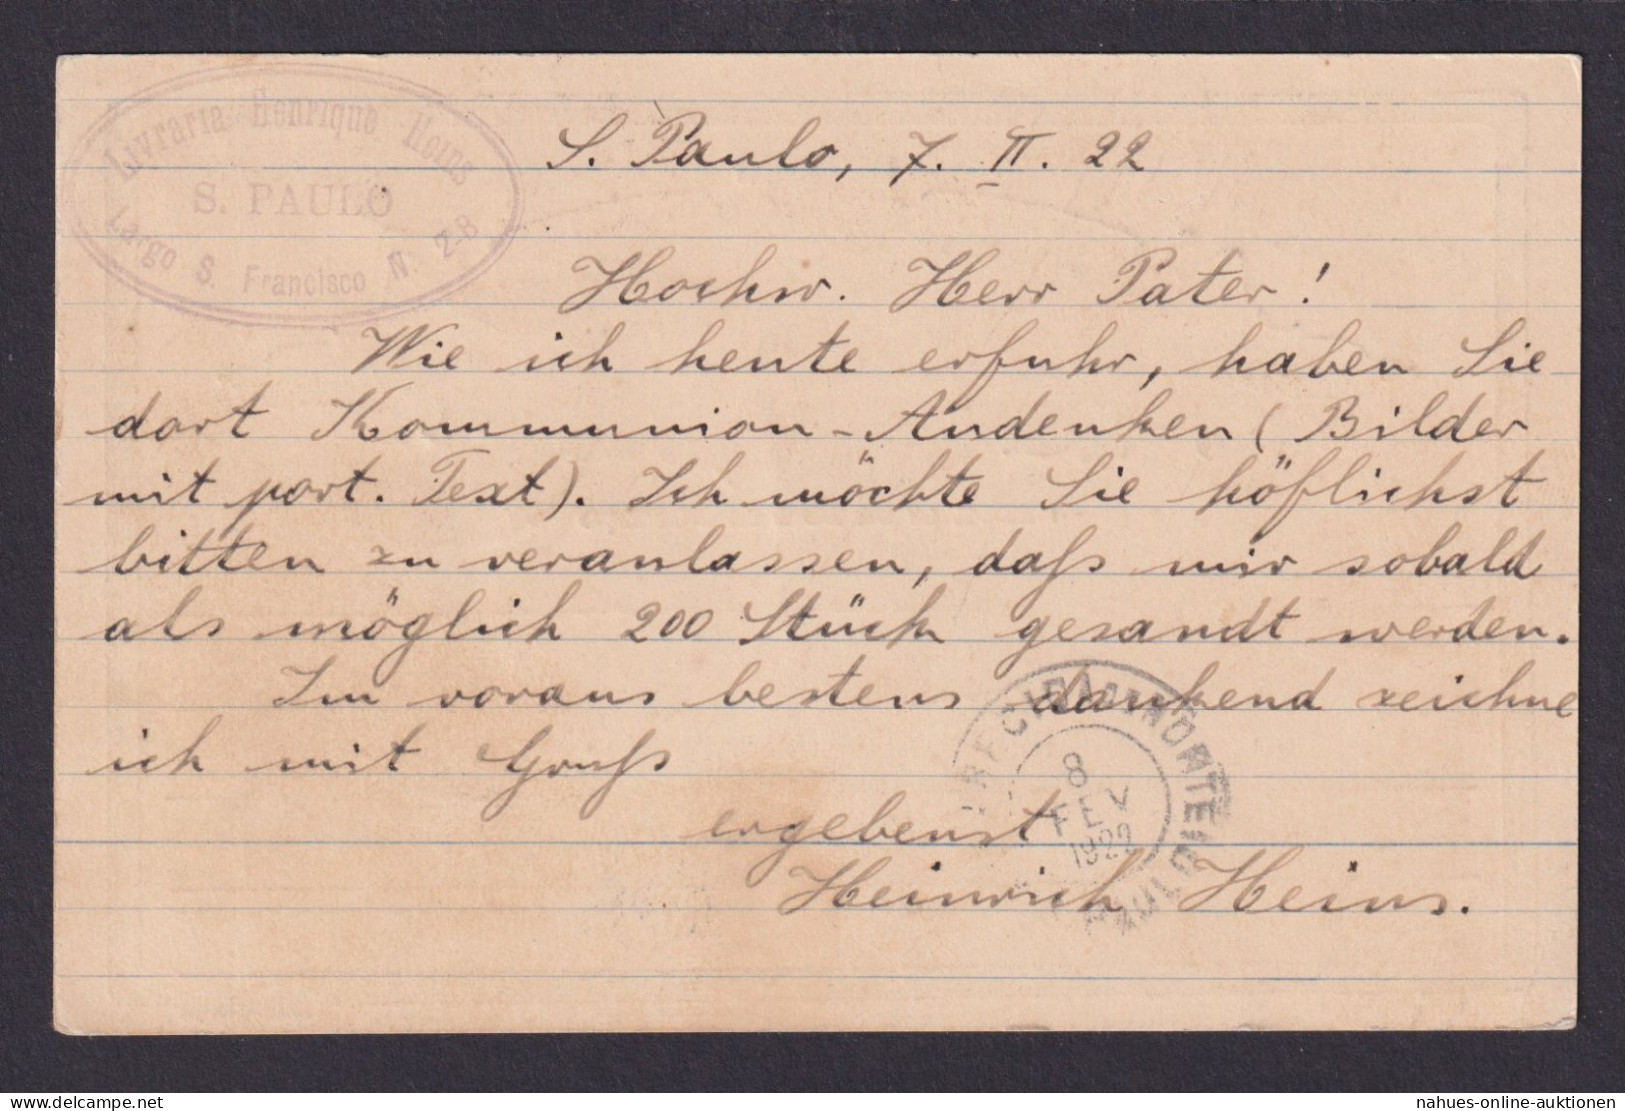 Livraria Henrique Heins
S. PAULO
Largo S. Francisco N. 2-B
S. Paulo, 7. II. 22
Hochw. Herr Pater!
Wie ich heute erfuhr, haben Sie
dort Kommunion-Andenken (Bilder
mit port. Text). Ich möchte Sie höflichst
bitten zu veranlassen, daſs mir sobald
als möglich 200 Stück gesandt werden.
Im voraus bestens dankend zeichne
ich mit Gruſs
ergebenst
Heinrich Heins.
8
FEV
1922
nahues-online-auktionen